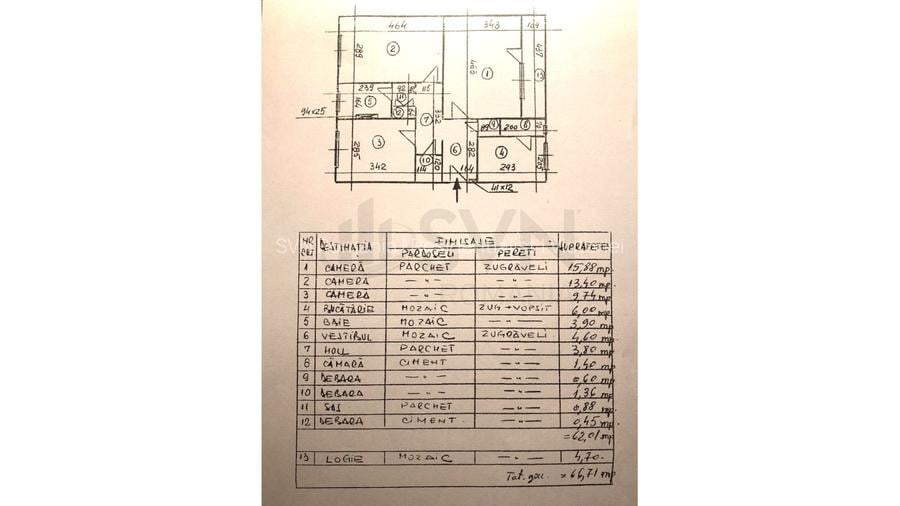 464 343 109
289 2 460 1 457 13
239 92 115
164 5 11
94x25 12 7 352 9 200 8
3 6 282 4
285 10 120 205
342 114 164 293
41x12
SVN
ROMANIA
NR CRT DESTINAȚIA FINISAJE SUPRAFETE
PARDOSELI PERETI
1 CAMERĂ PARCHET ZUGRĂVELI 15,88 mp.
2 CAMERĂ — " — — " — 13,40 mp
3 CAMERĂ — " — — " — 9,74 mp
4 BUCĂTĂRIE MOZAIC ZUG + VOPSIT 6,00 mp
5 BAIE MOZAIC — " — 3,90 mp
6 VESTIBUL MOZAIC ZUGRĂVELI 4,60 mp
7 HOLL PARCHET — " — 3,80 mp
8 CĂMARĂ CIMENT — " — 1,40 mp
9 DEBARA — " — — " — 0,60 mp
10 DEBARA — " — — " — 1,36 mp
11 SAS PARCHET — " — 0,88 mp.
12 DEBARA CIMENT — " — 0,45 mp
=62,01 mp
13 LOGIE MOZAIC — " — 4,70.
Tot. gen. =66,71 mp